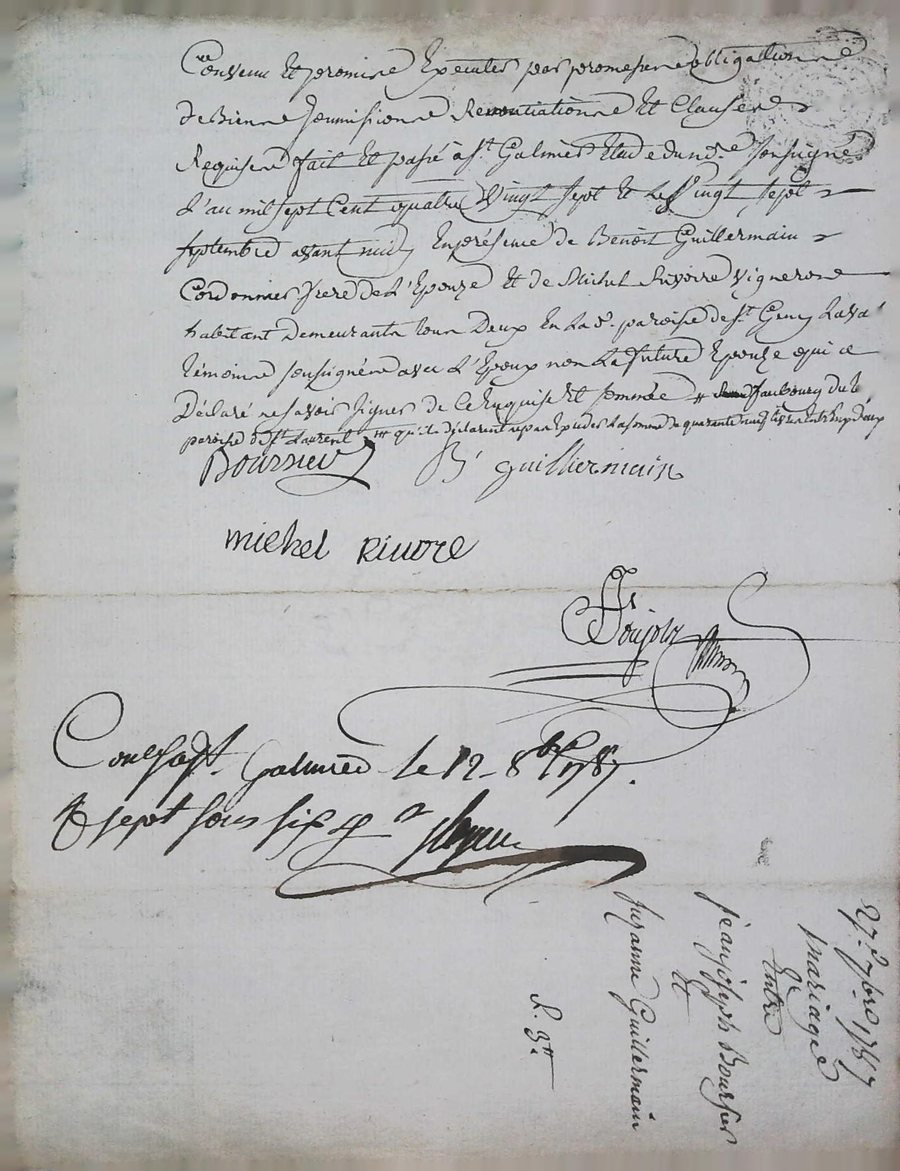 Convenu Et promire Executer par promesse obligationne
de Bienne Soumisionne Renontiationne Et Clausene
Requisene fait Et passé a St. Galmier Etude du nore. Soussigné
L'an mil sept Cent quatre Vingt sept et Le Vingt sept
septembre avant midy En présence de Benoit Guillermain
Cordonnier frere de L'Epouze Et de Michel Rivoire vignerone
habitant Demeurante tous Deux En Lad. paroise de St. Genis Laval
témoine soussignéne avec L'Epoux non La future Epouze qui a
Déclaré ne savoir signer de Ce Enquise Et sommée faubourg du
paroise de St. Laurent qu'ils déclarent La somme de quarante neuf
Boursier B. guilliermain
michel Riuore
Poujols
Con. a St. Galmier le 12 8bre 1787.
R sept sous six
27e. 7bre 1787
Mariage
Entre
jean joseph Boursier
Et
Suzanne Guillermain